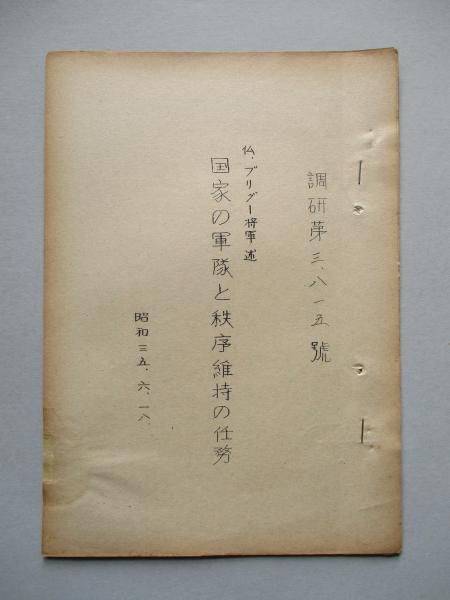 調研第三、八一五號
仏、ブリグー将軍述
国家の軍隊と秩序維持の任務
昭和三五、六、一八